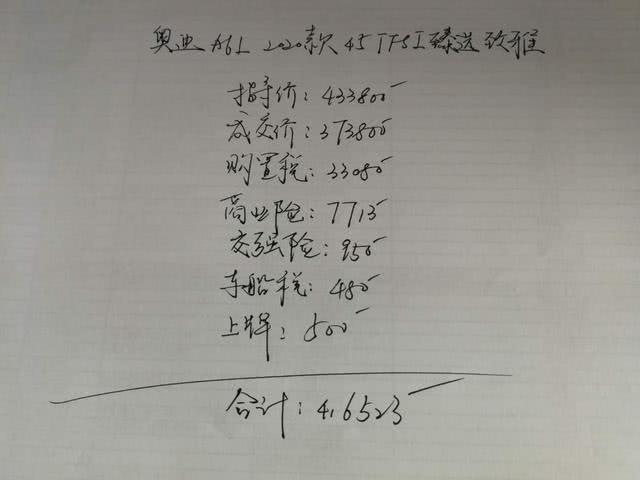 奥迪A6L 2020款 45TFSI臻选致雅
指导价：433800
成交价：373800
购置税：33080
商业险：7713
交强险：950
车船税：480
上牌：500
合计：416523